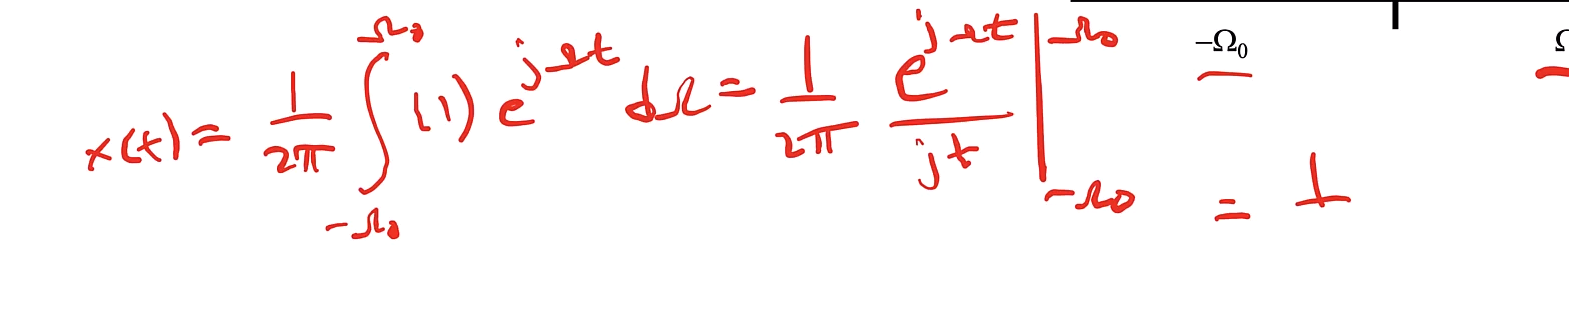 x(t) = \frac{1}{2\pi} \int_{-Ω_0}^{Ω_0} (1) e^{jΩt} dΩ = \frac{1}{2\pi} \frac{e^{jΩt}}{jt} |_{-Ω_0}^{Ω_0} = 1
−Ω₀ Ω